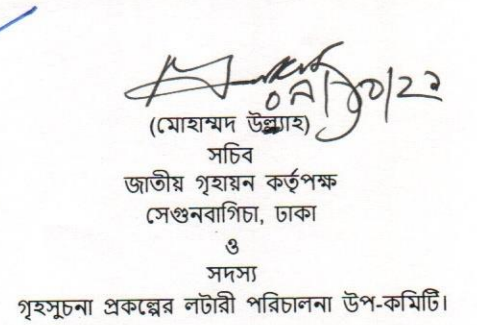 (মোহাম্মদ উল্ল্যাহ)
সচিব
জাতীয় গৃহায়ন কর্তৃপক্ষ
সেগুনবাগিচা, ঢাকা
ও
সদস্য
গৃহসূচনা প্রকল্পের লটারী পরিচালনা উপ-কমিটি।